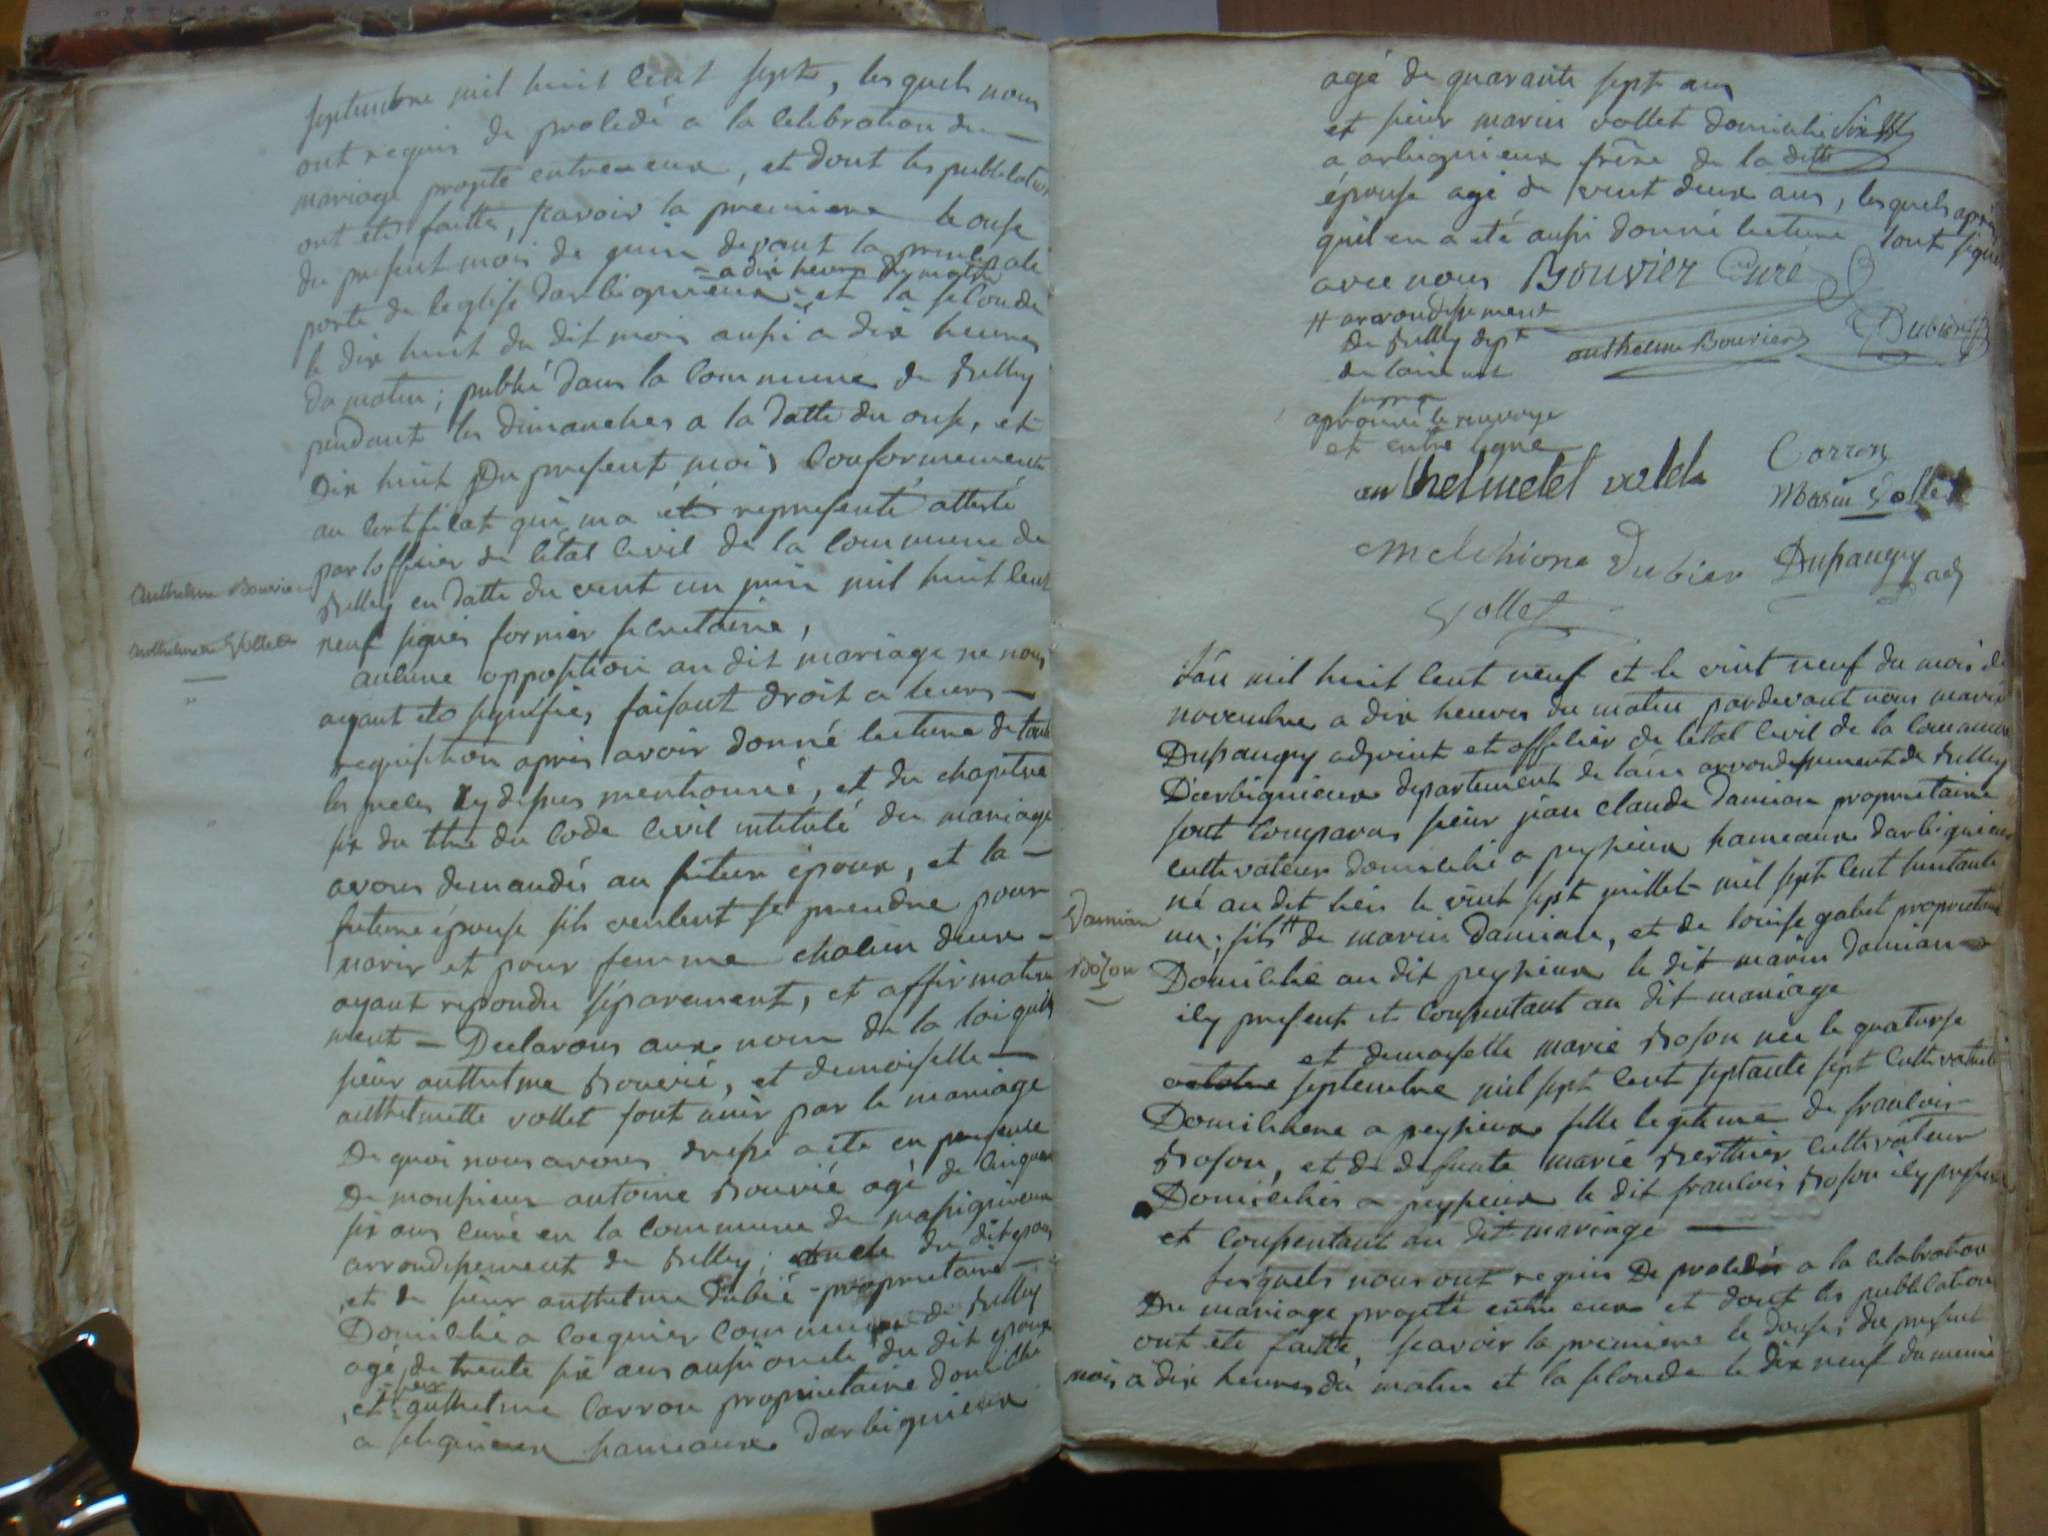 septembre mil huit cent sept, les quels nous
ont requis de procedé a la celebration du
mariage projté entre eux, et dont les publications
ont été faittes, scavoir la premiere le onse
du present mois de juin devant la principale
= a dix heures du matin
porte de leglise darbignieux = et la seconde
le dix huit du dit mois aussi a dix heures
du matin; publié dans la commune de Belley
pendant les dimanches a la datte du onse, et
dix huit du present mois conformement
au certificat qui m'a été representé attesté
par lofficier de letat civil de la commune de
Belley en datte du vent un juin mil huit cent
neuf signés fornier secretaire,
Anthelme Bouvier
Anthelmette Vollet
aucune opposition au dit mariage ne nous
ayant eté signifiés faisant droit a leurs
requisition apres avoir donné lecture de toute
les pieces cy dessus mentionné, et du chapitre
six du titre du code civil intitulé du mariage
avons demandés au futur époux, et la
future épouse sils veulent se prendre pour
marir et pour femme chacun deux
ayant repondu séparement, et affirmative
ment - Declarons aux nom de la loi que
sieur anthelme Bouvié, et demoiselle
anthelmette vollet sont unir par le mariage
De quoi nous avons dressé acte en presence
De monsieur antoine Bouvié agé de cinquante
six ans curé en la commune de massignieux
arrondissement de Belley; oncle du dit epoux
et de sieur anthelme dubié proprietaire
Domicilié a coegnier commune de Belley
agé de trente six ans aussi oncle du dit epoux
et sieur anthelme Carron proprietaire domicilié
a seligneux hameaux darbignieux
agé de quarante sept ans
et sieur marin vollet domicilié
a arbignieux frère de la ditte
épouse agé de vent deux ans, les quels après
quil en a été aussi donné lecture sont signé
avec nous Bouvier Curé
# arrondissement
de Belley dept
de lain
anthelme Bouvier Dubier
aprouvé le renvoye
et entre ligne
anthelmetet volet Corron
Marin Vollet
Melchione Dubier Dupaugey adj
Vollet
Lan mil huit cent neuf et le vint neuf du mois de
novembre a dix heures du matin pardevant nous marin
Dupaugey adjoint et officier de letat civil de la commune
Darbignieux departement de lain arrondissement de Belley
sont comparus sieur jean claude damian proprietaire
cultivateur domicilié a peyzieux hameaux darbignieux
né au dit lieu le vint sept juillet mil sept cent huitante
un; fils # de marin damian, et de louise gabet proprietaire
Damian
Bozon
Domicilié au dit peyzieux le dit marin damian
icy present et consentant au dit mariage
et demoiselle marie Boson née le quatorse
octobre septembre mil sept cent septante sept cultivatrice
Domiciliene a peyzieux fille legitime de francois
Boson, et de defunte marie Berthier cultivateur
Domiciliés a peyzieux le dit francois Boson icy present
et consentant au dit mariage
Lesquels nous ont requis De procedés a la celebration
Du mariage projeté entre eux et dont les publication
ont été faitte, scavoir la premiere le douse du present
mois a dix heures du matin et la seconde le dix neuf du meme